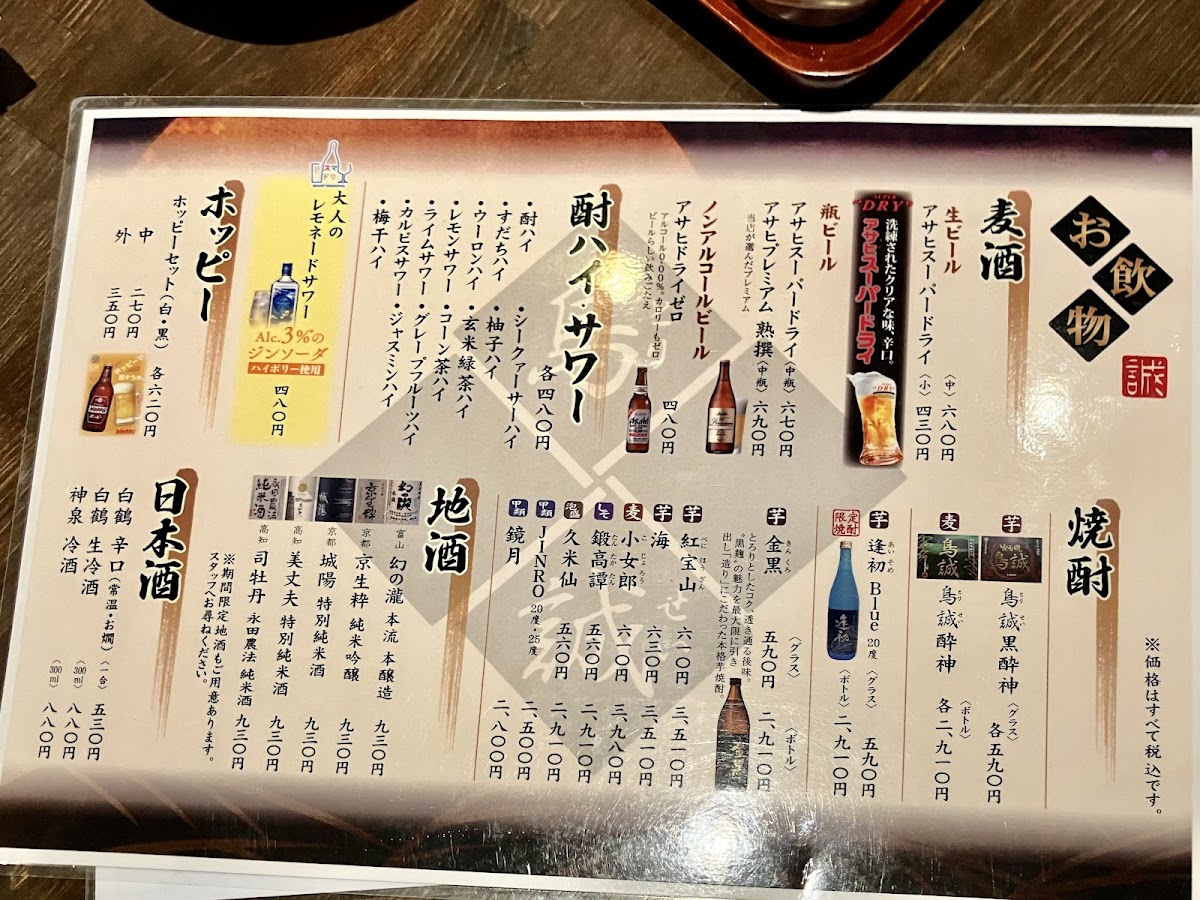 お飲物
誠
※価格はすべて税込です。
麦酒
生ビール
アサヒスーパードライ
〈中〉六八〇円
〈小〉四三〇円
SUPER
"DRY"
洗練されたクリアな味、辛口。
アサヒスーパードライ
瓶ビール
アサヒスーパードライ〈中瓶〉六七〇円
アサヒプレミアム 熟撰〈中瓶〉六九〇円
当店が選んだプレミアム
ノンアルコールビール
アサヒドライゼロ 四八〇円
アルコール0.00%。カロリーもゼロ
ビールらしい飲みごたえ
酎ハイ・サワー
各四八〇円
・酎ハイ
・すだちハイ
・ウーロンハイ
・レモンサワー
・ライムサワー
・カルピスサワー
・梅干ハイ
・シークァーサーハイ
・柚子ハイ
・玄米緑茶ハイ
・コーン茶ハイ
・グレープフルーツハイ
・ジャスミンハイ
スマドリ
大人の
レモネードサワー
Alc.3%の
ジンソーダ
ハイボリー使用
四八〇円
ホッピー
ホッピーセット(白・黒) 各六二〇円
中 二七〇円
外 三五〇円
焼酎
芋 鳥誠 黒酔神 〈グラス〉各五九〇円
麦 鳥誠 酔神 〈ボトル〉各二、九一〇円
限定焼酎
芋 逢初 Blue 20度 〈グラス〉五九〇円
〈ボトル〉二、九一〇円
〈グラス〉〈ボトル〉
芋 金黒 五九〇円 二、九一〇円
とろりとしたコク、透き通る後味。
"黒麹"の魅力を最大限に引き
出し「造り」にこだわった本格芋焼酎。
芋 紅宝山 六一〇円 三、五一〇円
芋 海 六三〇円 三、五一〇円
麦 小女郎 六一〇円 三、九八〇円
しそ 鍛高譚 五六〇円 二、九一〇円
泡盛 久米仙 五六〇円 二、九一〇円
甲類 JINRO 20度・25度 二、五〇〇円
甲類 鏡月 二、八〇〇円
地酒
富山 幻の瀧 本流 本醸造 九三〇円
京都 京生粋 純米吟醸 九三〇円
京都 城陽 特別純米酒 九三〇円
高知 美丈夫 特別純米酒 九三〇円
高知 司牡丹 永田農法 純米酒 九三〇円
※期間限定地酒もご用意あります。
スタッフへお尋ねください。
日本酒
白鶴 辛口(常温・お燗)〈一合〉五三〇円
白鶴 生冷酒〈300ml〉八八〇円
神泉 冷酒〈300ml〉八八〇円